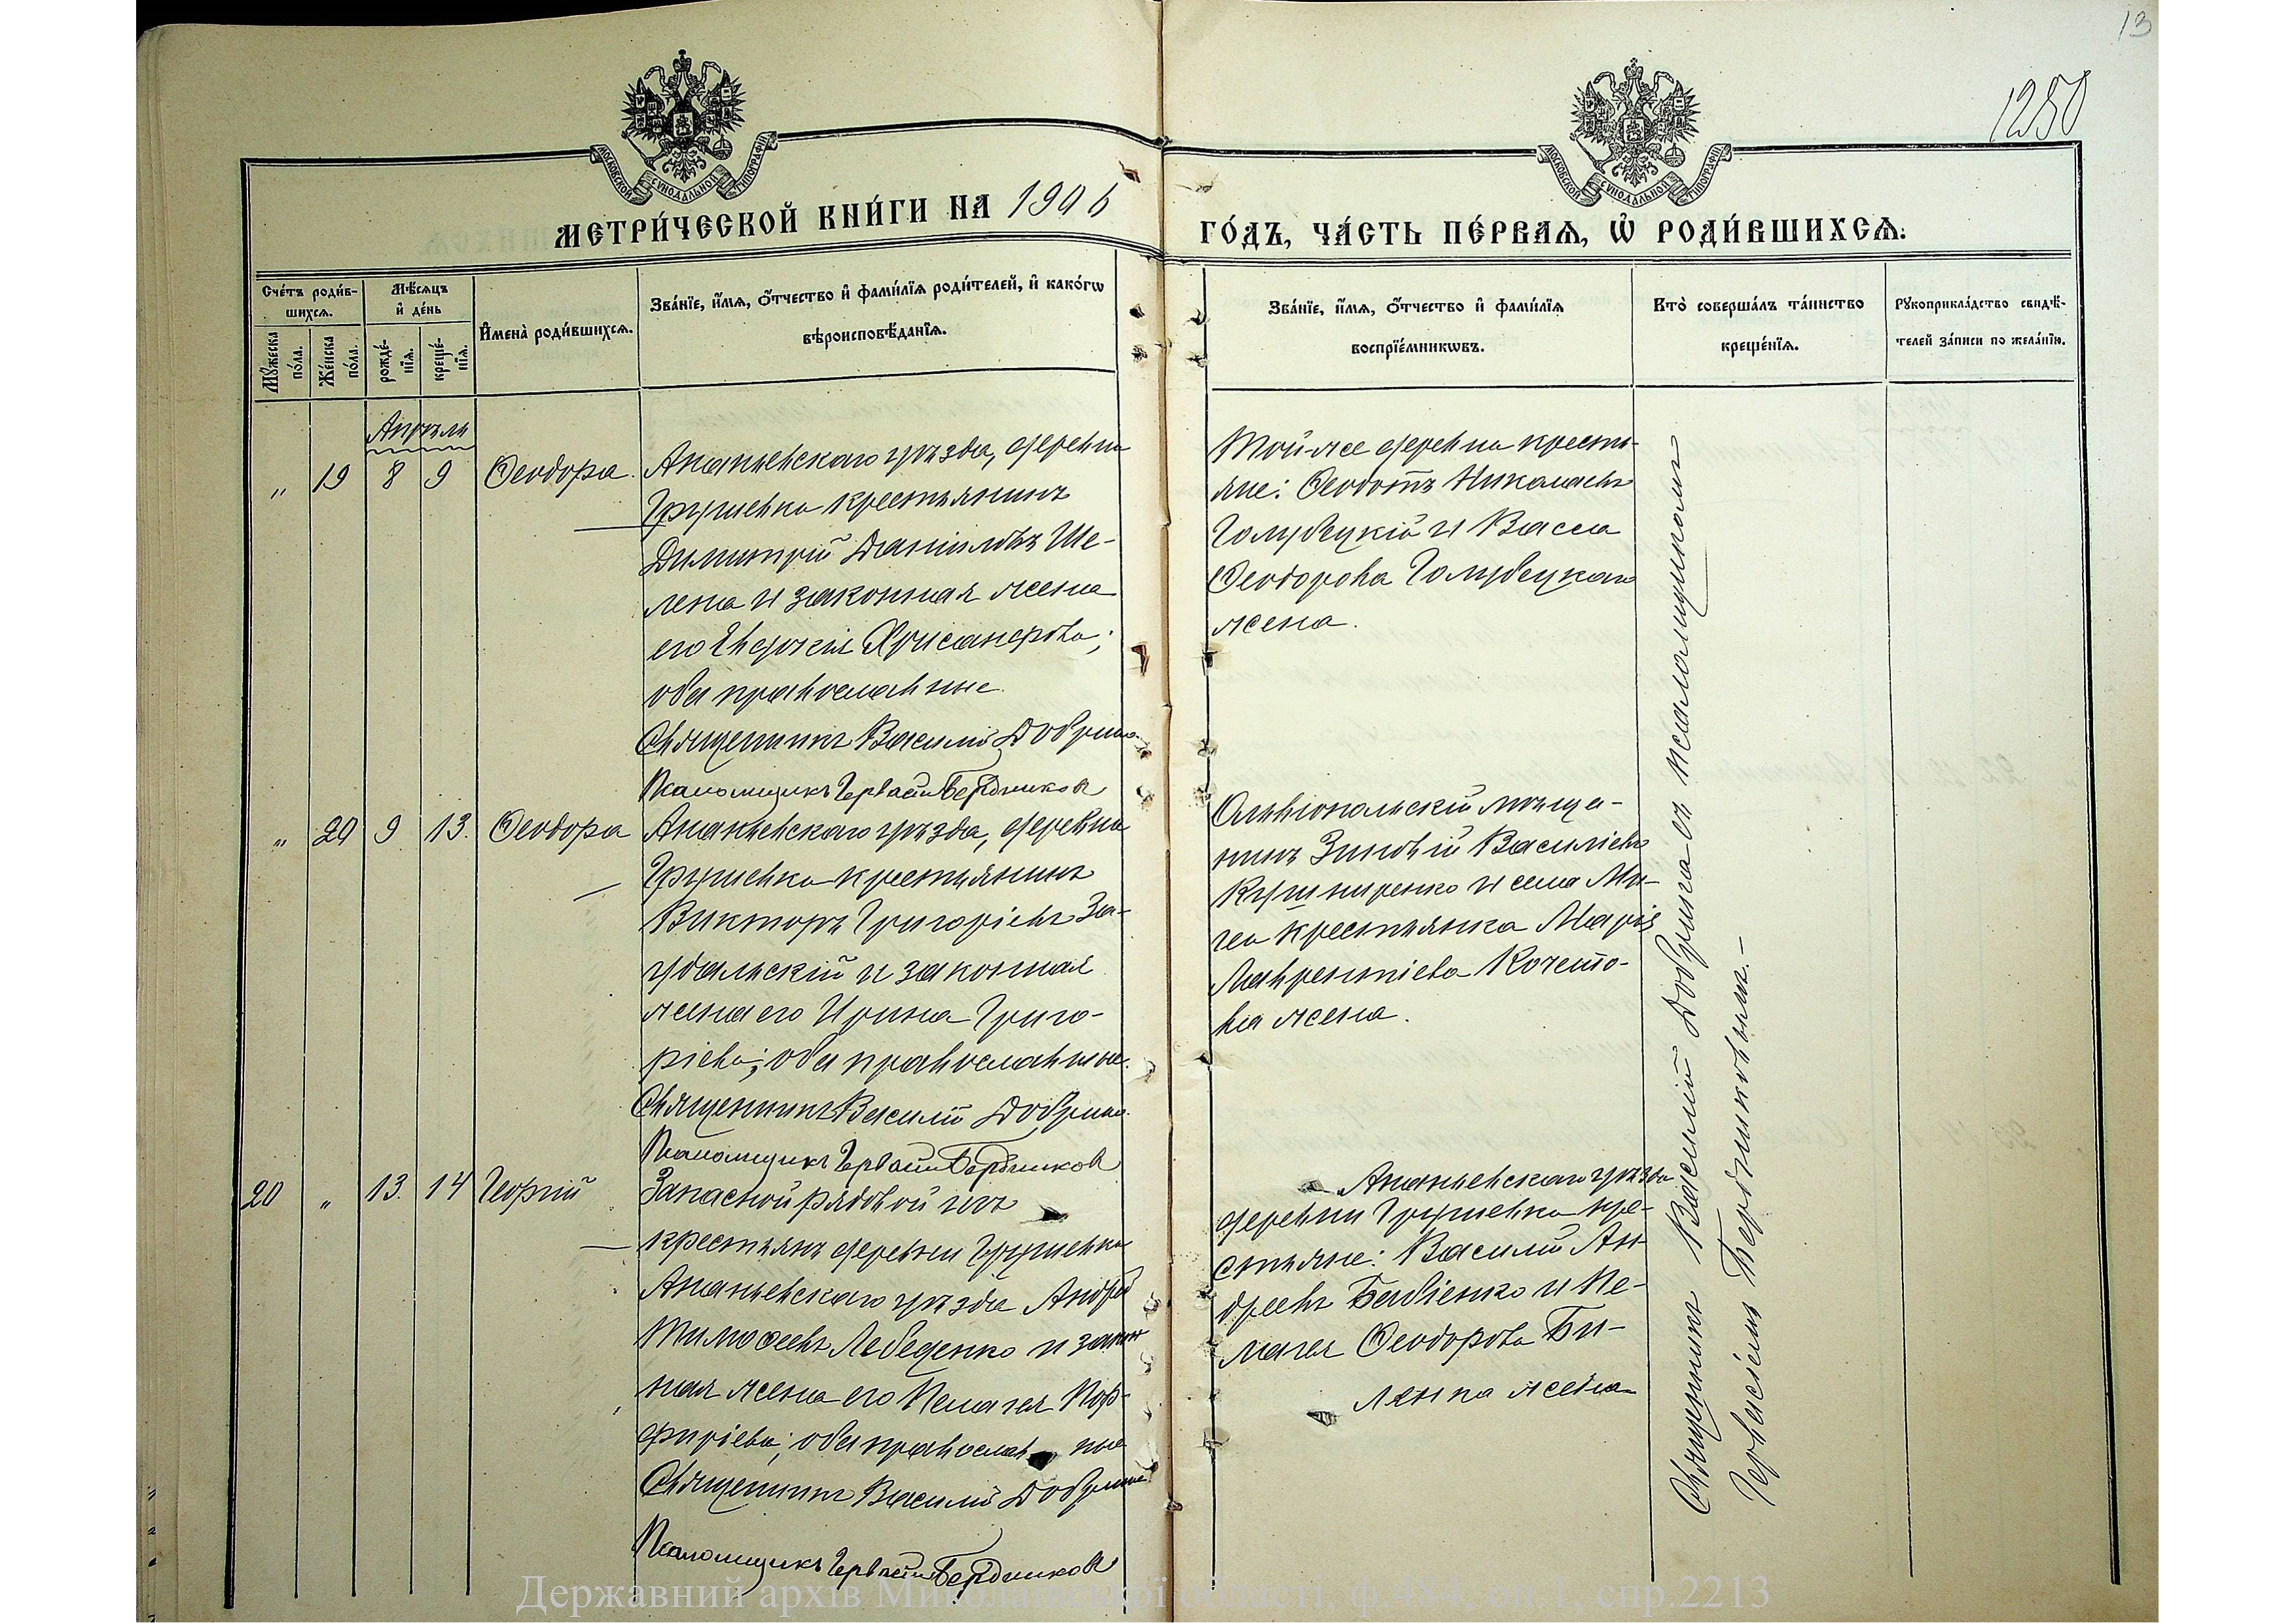 13
1250
МОСКОВСКОЙ СУНОДАЛЬНОЙ ТИПОГРАФІИ
МОСКОВСКОЙ СУНОДАЛЬНОЙ ТИПОГРАФІИ
МЕТРИ́ЧЕСКОЙ КНИ́ГИ НА 1906
ГО́ДЪ, ЧА́СТЬ ПЕ́РВАѦ, Ѡ҆ РОДИ́ВШИХСѦ:
Сче́тъ роди́в-
шихсѧ.
Мꙋ́жеска по́ла.
Же́нска по́ла.
Мѣ́сѧцъ
и҆ де́нь
рожде́-
нїѧ.
креще́-
нїѧ.
И҆мена̀ роди́вшихсѧ.
Зва́нїе, и҆́мѧ, ѻ҆́тчество и҆ фами́лїѧ роди́телей, и҆ како́гѡ
вѣроисповѣ́данїѧ.
Зва́нїе, и҆́мѧ, ѻ҆́тчество и҆ фами́лїѧ
воспрїе́мникѡвъ.
Кто̀ соверша́лъ та́инство
креще́нїѧ.
Рꙋкоприкла́дство свидѣ́-
телей за́писи по жела́нїю.
Апрѣль
„ 19 8 9 Ѳеодора.
Ананьевскаго уѣзда, деревни
Грушевки крестьянинъ
Димитрій Даніиловъ Ше-
лена и законная жена
его Евдокія Хрисанфова;
оба православные.
Священникъ Василій Добрина.
Псаломщикъ Гервасій Бердников
Той-же деревни кресть-
яне: Ѳеодотъ Николаевъ
Голубецкій и Васса
Ѳеодорова Голубецкая
жена.
„ 20 9 13. Ѳеодора
Ананьевскаго уѣзда, деревни
Грушевки крестьянинъ
Викторъ Григоріевъ За-
убальскій и законная
жена его Ирина Григо-
ріева; оба православные.
Священникъ Василій Добрина.
Псаломщикъ Гервасій Бердников
Ольвіопольскій мѣща-
нинъ Зиновій Василіевъ
Кушниренко и села Ми-
геи крестьянка Марія
Лаврентіева Кочето-
ва жена.
20 „ 13. 14 Георгій
Запасной рядовой изъ
крестьянъ деревни Грушевки
Ананьевскаго уѣзда Андрей
Тимоѳеевъ Лебеденко и закон
ная жена его Пелагея Пор-
фиріева; оба православ ные
Священникъ Василій Добрина
Псаломщикъ Гервасій Бердников
Ананьевскаго уѣзда
деревни Грушевки кре-
стьяне: Василій Ан-
дреевъ Бабіенко и Пе-
лагея Ѳеодорова Би-
ленка жена
Священникъ Василій Добрина съ псаломщикомъ
Гервасіемъ Бердниковымъ.-
Державний архів Миколаївської області, ф.484, оп.1, спр.2213